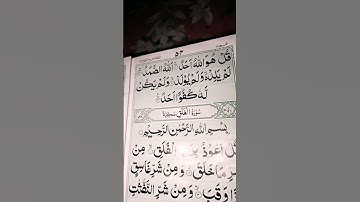 ٥٣
قُلْ هُوَ اللّٰهُ اَحَدٌ ۚ اَللّٰهُ الصَّمَدُ ۚ
لَمْ يَلِدْ ۙ وَلَمْ يُوْلَدْ ۙ وَلَمْ يَكُنْ
لَّهٗ كُفُوًا اَحَدٌ
سُوْرَةُ الْفَلَقِ
بِسْمِ اللّٰهِ الرَّحْمٰنِ الرَّحِيْمِ
اَعُوْذُ بِرَبِّ الْفَلَقِ ۙ مِنْ
مَا خَلَقَ ۙ وَمِنْ شَرِّ غَاسِقٍ
وَقَبَ ۙ وَمِنْ شَرِّ النَّفّٰثٰتِ